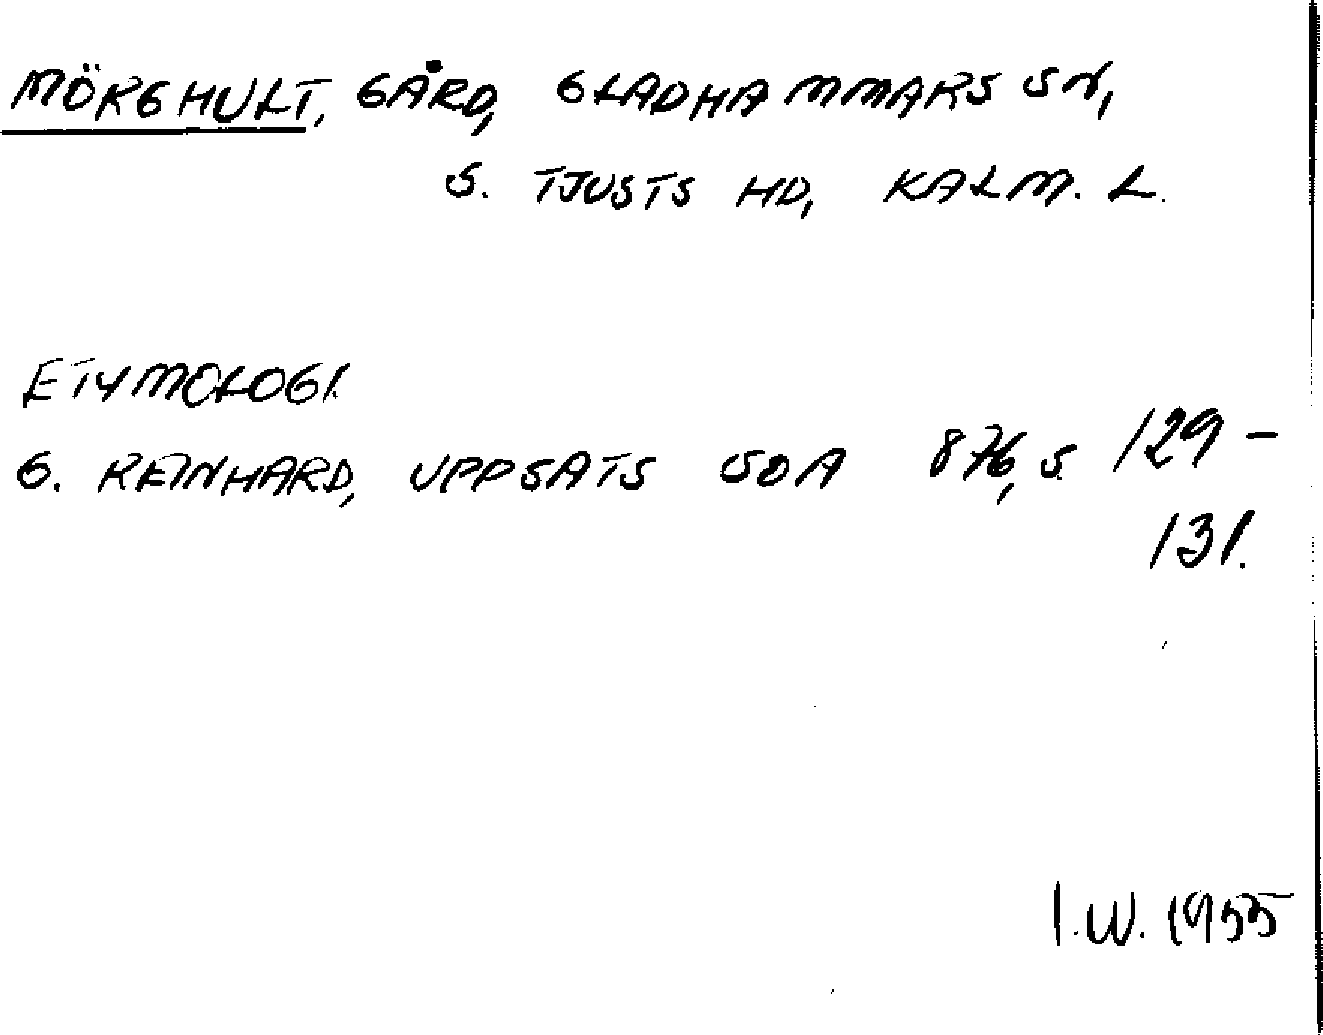 MÖRGHULT, GÅRD, GLADHAMMARS SN,
S. TJUSTS HD, KALM. L.
ETYMOLOGI.
G. REINHARD, UPPSATS SOA 876, S. 129-
131.
I.W. 1955